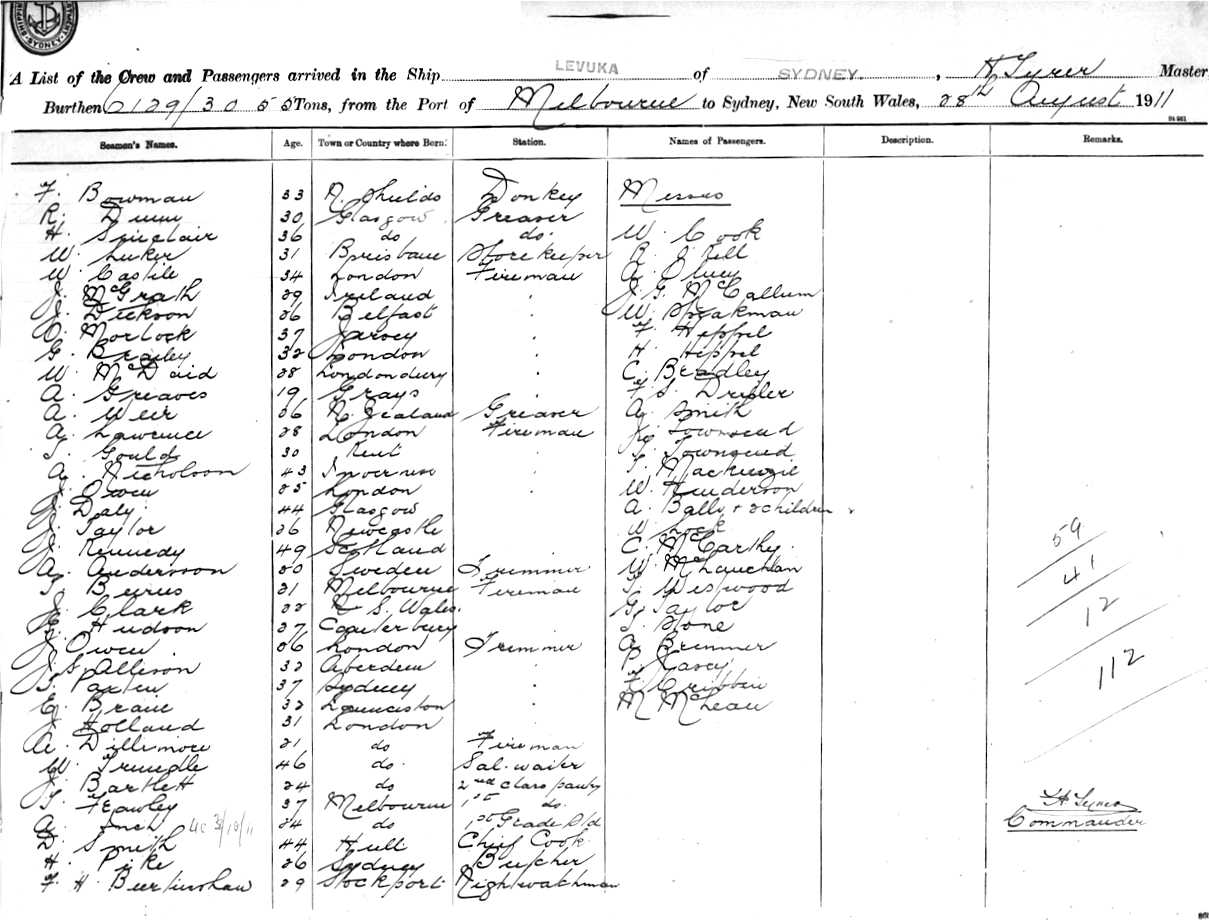 SHIPPING SYDNEY
A List of the Crew and Passengers arrived in the Ship LEVUKA of SYDNEY. , H Tyrer Master
Burthen 6129/30 55 Tons, from the Port of Melbourne to Sydney, New South Wales, 28th August 1911
Seamen's Names. Age. Town or Country where Born. Station. Names of Passengers. Description. Remarks.
F. Bowman 33 N. Shields Donkey Messrs
R. Dunn 30 Glasgow Greaser
H. Sinclair 36 do do. W. Cook
W. Luker 31 Brisbane Storekeeper R J Kell
W. Castile 34 London Fireman A.
J. McGrath 29 Ireland J. G. McCallum
J. Dickson 26 Belfast W. Speakman
O. Morlock 37 Jersey F. Heppel
G. Brailey 32 London H. Heppel
W. McDaid 28 Londondery C. Beadley
A. Greaves 19 Grays F. S. Drexler
A. Weir 26 N. Zealand Greaser A. Smith
A. Lawrence 28 London Fireman J. Townsend
T. Gould 30 Kent T. Townsend
A. Nicholson 43 Inverness T. Mackenzie
J. Owen 25 London W. Henderson
J. Daly 44 Glasgow A. Balls + 2 children
J. Taylor 26 Newcastle W Lock
J. Kennedy 49 Scotland C. McCarthy. 59
A. Andersson 20 Sweden Trimmer W. McLauchlan 41
T. Burns 21 Melbourne Fireman T. Westwood
J. Clark 22 N. S. Wales. G. Taylor 12
E. Hudson 27 Canterbury T. Stone
J. Owen 26 London Trimmer A. Bremner
J. S. Allison 32 Aberdeen P. Casey 112
T. Paxten 37 Sydney F Cribbin
E. Braie 32 Launceston M McLean
J. Holland 31 London
A. Dillimore 21 do Fireman
W. Trundle 46 do. Sal. waiter
J. Bartlett 24 do 2nd class pantry
T. Feawley 37 Melbourne 1st do. H Tyrer
A. Inch 24 do 1st Grade Std Commander
D. Smith 44 Hull Chief Cook
H. Pike 26 Sydney Butcher
F. H. Bertinshaw 29 Stockport Nightwatchman